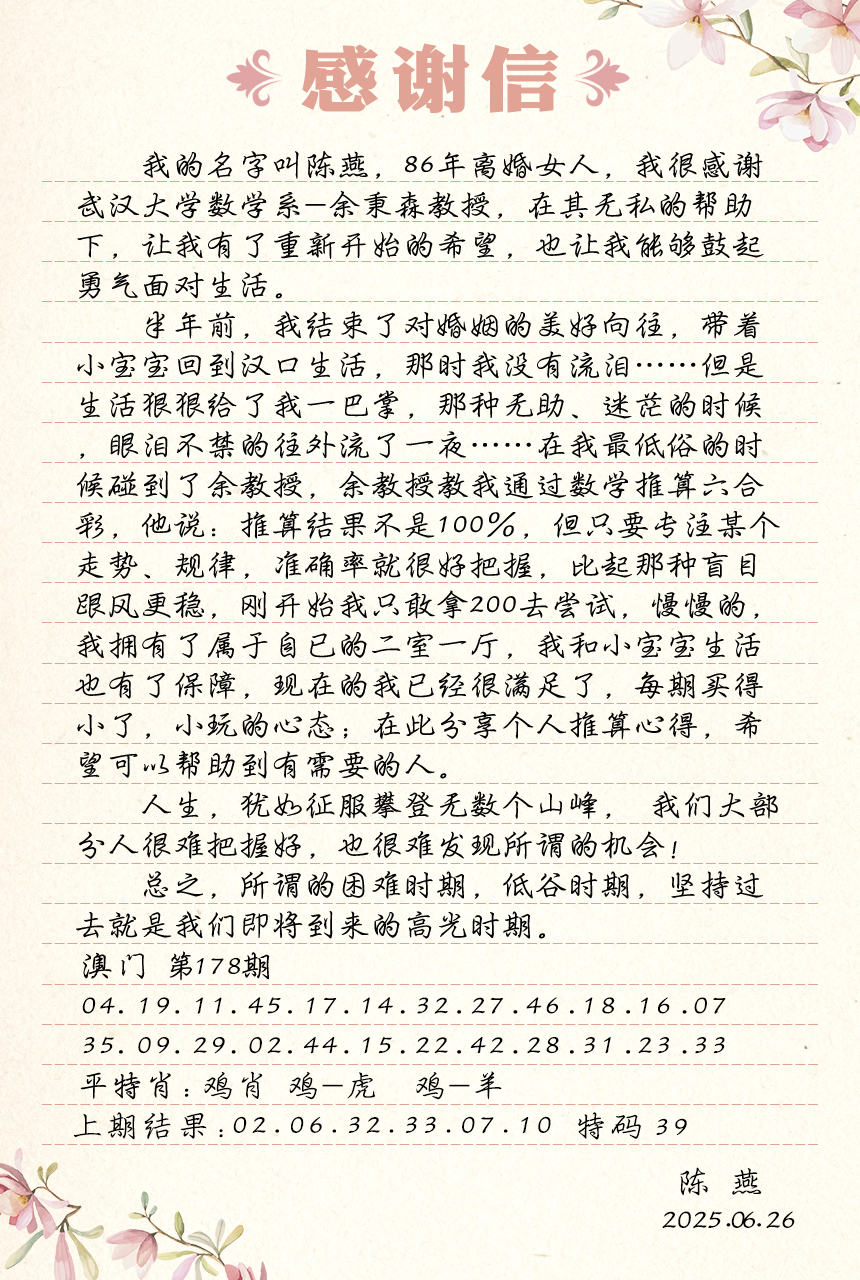 感谢信
我的名字叫陈燕，86年离婚女人，我很感谢
武汉大学数学系-余秉森教授，在其无私的帮助
下，让我有了重新开始的希望，也让我能够鼓起
勇气面对生活。
半年前，我结束了对婚姻的美好向往，带着
小宝宝回到汉口生活，那时我没有流泪……但是
生活狠狠给了我一巴掌，那种无助、迷茫的时候
，眼泪不禁的往外流了一夜……在我最低俗的时
候碰到了余教授，余教授教我通过数学推算六合
彩，他说：推算结果不是100%，但只要专注某个
走势、规律，准确率就很好把握，比起那种盲目
跟风更稳，刚开始我只敢拿200去尝试，慢慢的，
我拥有了属于自己的二室一厅，我和小宝宝生活
也有了保障，现在的我已经很满足了，每期买得
小了，小玩的心态；在此分享个人推算心得，希
望可以帮助到有需要的人。
人生，犹如征服攀登无数个山峰， 我们大部
分人很难把握好，也很难发现所谓的机会！
总之，所谓的困难时期，低谷时期，坚持过
去就是我们即将到来的高光时期。
澳门 第178期
04.19.11.45.17.14.32.27.46.18.16.07
35.09.29.02.44.15.22.42.28.31.23.33
平特肖：鸡肖 鸡-虎 鸡-羊
上期结果：02.06.32.33.07.10 特码 39
陈 燕
2025.06.26